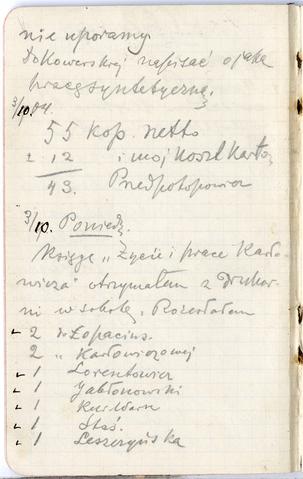 nie uporamy
do Kowerskiej napisać o jaką
pracę syntetyczną.
3/10. 04.
55 kop. netto
± 12 i mój koszt Karło
43. Przedpotopowicz
3/10. Poniedz.
Księgę „Życie i prace Karło-
wicza" otrzymałem z drukar-
ni w sobotę. Rozesłałem
2 do Łopacińs.
2 „ Karłowiczowej
1 Lorentowicz
1 Jabłonowski
1
1 Staś.
1 Leszczyńska